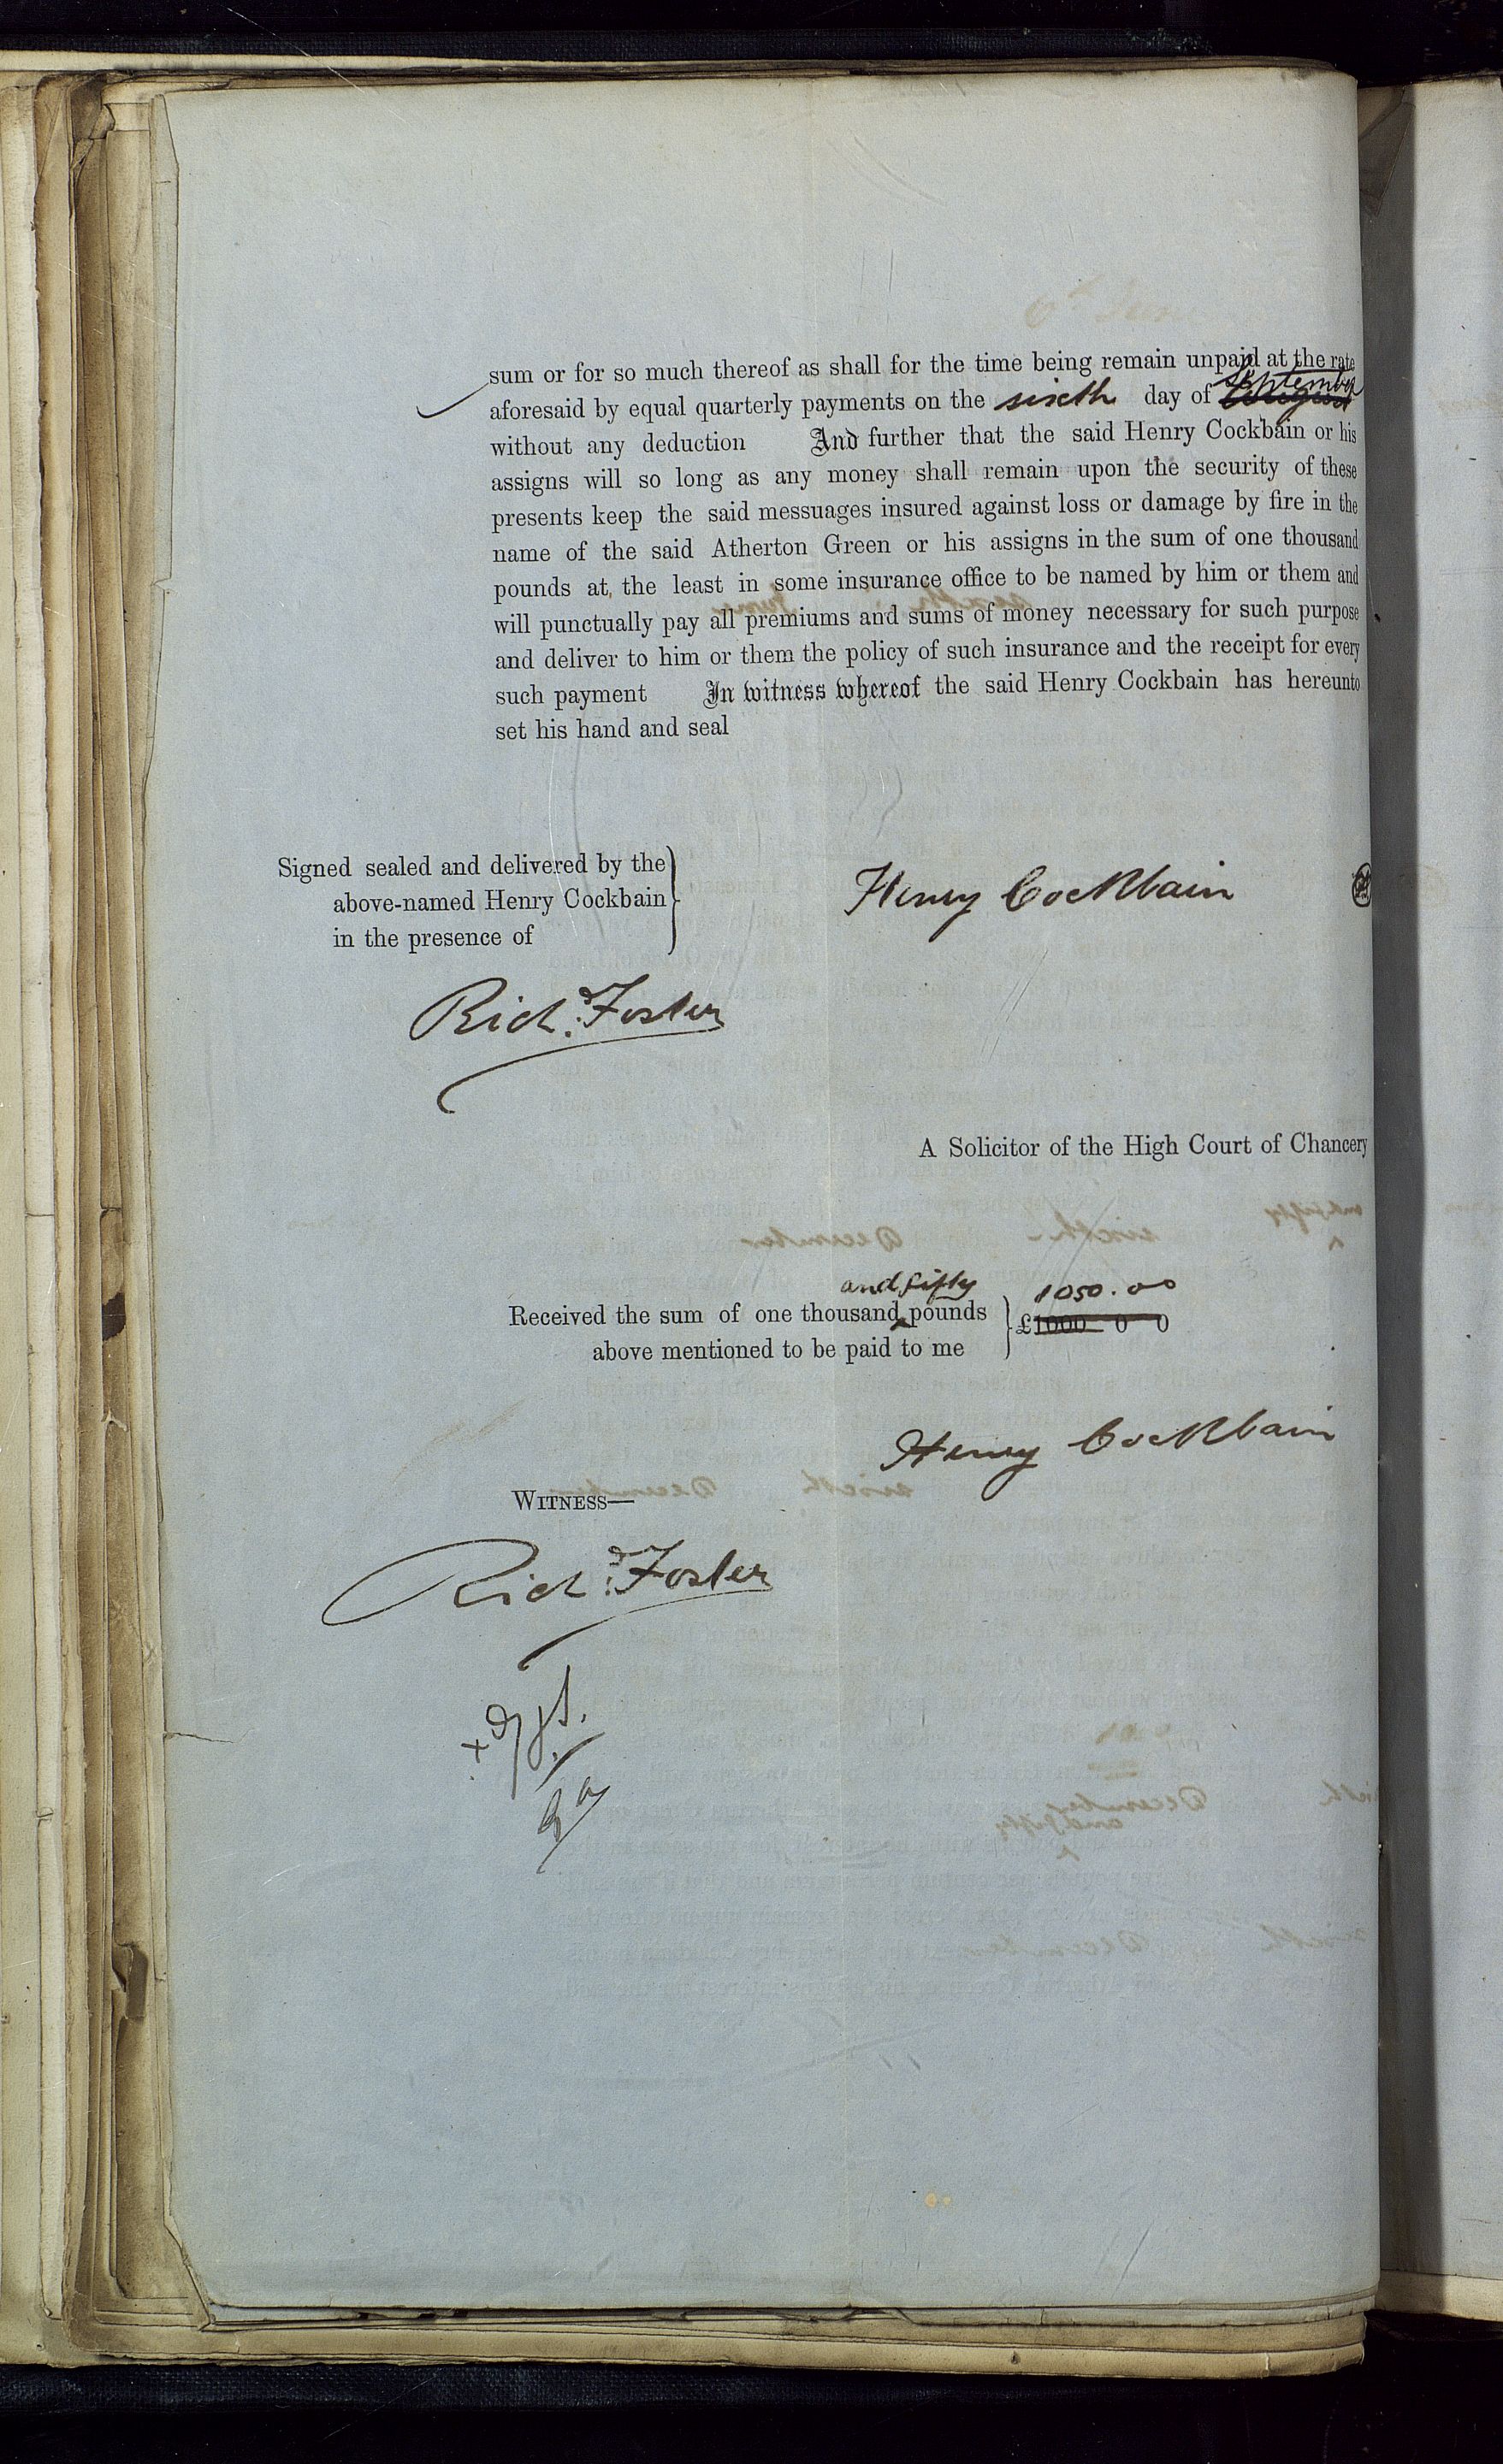 sum or for so much thereof as shall for the time being remain unpaid at the rate
aforesaid by equal quarterly payments on the sixth day of September
without any deduction And further that the said Henry Cockbain or his
assigns will so long as any money shall remain upon the security of these
presents keep the said messuages insured against loss or damage by fire in the
name of the said Atherton Green or his assigns in the sum of one thousand
pounds at the least in some insurance office to be named by him or them and
will punctually pay all premiums and sums of money necessary for such purpose
and deliver to him or them the policy of such insurance and the receipt for every
such payment In witness whereof the said Henry Cockbain has hereunto
set his hand and seal
Signed sealed and delivered by the
above-named Henry Cockbain
in the presence of
Henry Cockbain
Richd. Foster
A Solicitor of the High Court of Chancery
and fifty 1050.00
Received the sum of one thousand pounds £1000 0 0
above mentioned to be paid to me
Henry Cockbain
WITNESS—
Richd. Foster